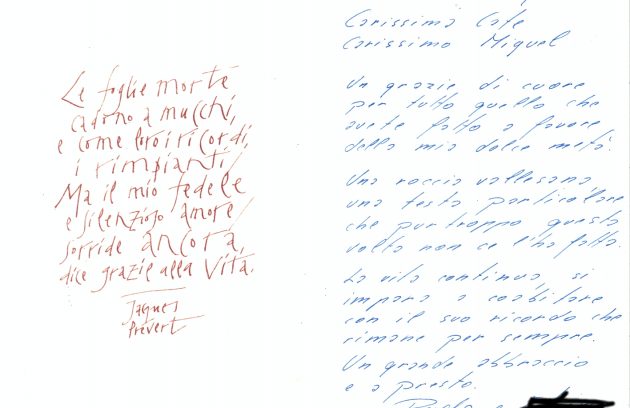 Le foglie morte
cadono a mucchi,
e come loro i ricordi,
i rimpianti/
Ma il mio fedele
e silenzioso amore/
sorride ancora,
dice grazie alla Vita.
Jaques
Prévert
Carissima Cate
Carissimo Miquel
Un grazie di cuore
per tutto quello che
avete fatto a favore
della mia dolce metà.
Una roccia vallesana
una testa particolare
che purtroppo questa
volta non ce l'ha fatta.
La vita continua, si
impara a coabitare
con il suo ricordo che
rimane per sempre.
Un grande abbraccio
e a presto.